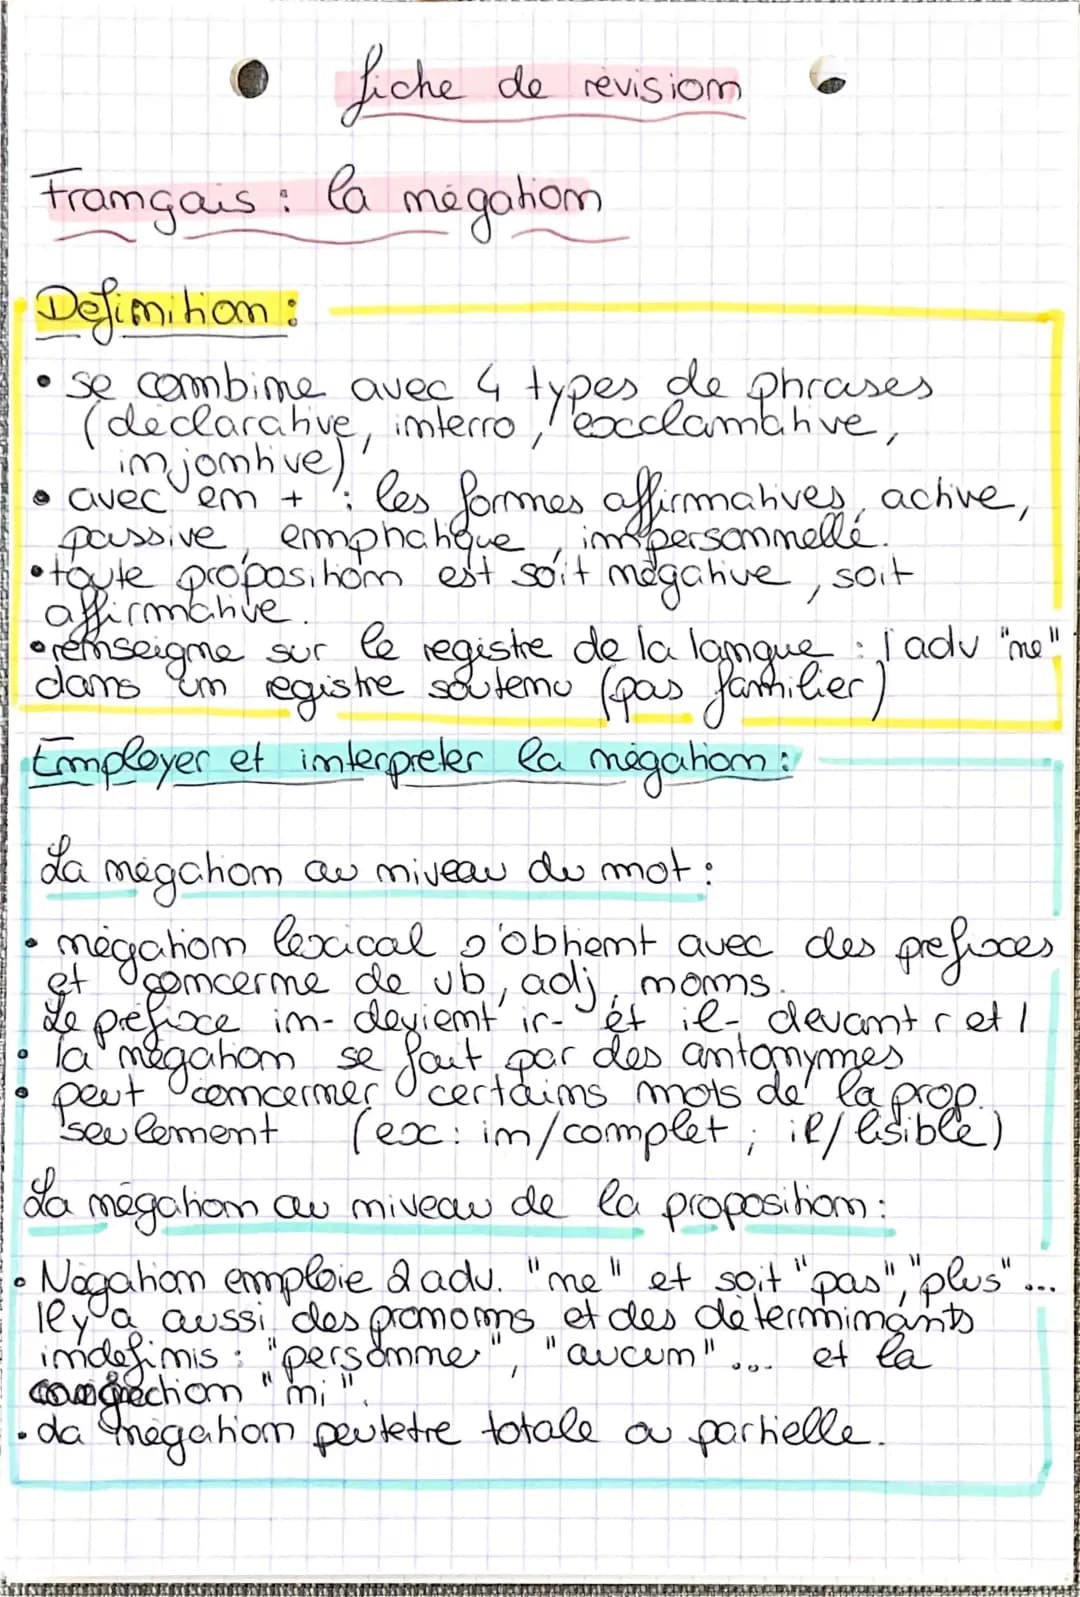 fiche de révision
Français : la négation
Définition :
• se combine avec 4 types de phrases
(déclarative, interro, exclamative,
injontive)
• avec en + : les formes affirmatives, active,
passive, emphatique, impersonnelle.
• toute proposition est soit négative, soit
affirmative.
• renseigne sur le registre de la langue : l'adv "ne"
dans un registre soutenu (pas familier)
Employer et interpréter la négation :
La négation au niveau du mot :
• négation lexical s'obtient avec des préfixes
et concerne de vb, adj, noms.
Le préfixe in- devient ir- et il- devant r et l
• la négation se fait par des antonymes
• peut concerner certains mots de la prop.
seulement (ex: in/complet ; il/lisible)
La négation au niveau de la proposition :
• Négation emploie 2 adv. "ne" et soit "pas", "plus"...
Il y a aussi des pronoms et des déterminants
indéfinis : "personne", "aucun"... et la
conjonction "ni".
• La négation peut etre totale ou partielle.